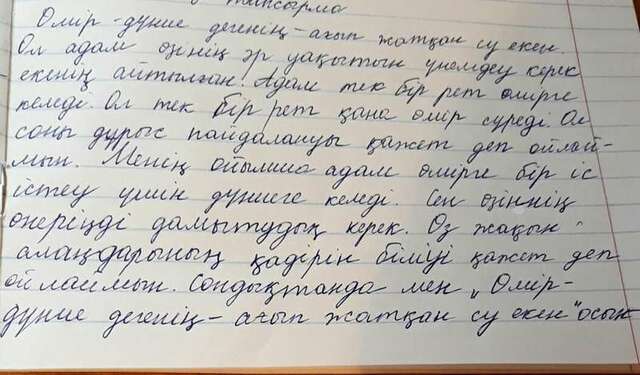 тапсырма
Өмір-дүние дегенің-ағып жатқан су екен.
Ол адам өзінің әр уақытын үнемдеу керек
екенің айтылған. Адам тек бір рет өмірге
келеді. Ол тек бір рет қана өмір сүреді. Ол
соны дұрыс пайдалануы қажет деп ойлай-
мын. Менің ойымша адам өмірге бір іс
істеу үшін дүниеге келеді. Сен өзіннің
өнеріңді дамытудық керек. Өз жақын
алаңдарының қадірін білуі қажет деп
ойлаймын. Сондықтанда мен „Өмір-
дүние дегенің-ағып жатқан су екен" осын